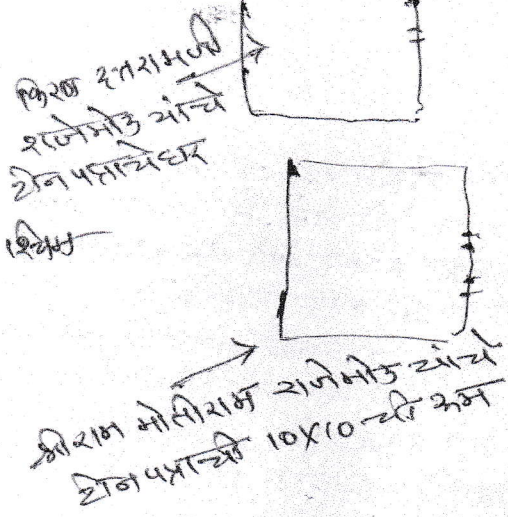 किरण दत्तरामजी
राजेमोड यांचे
टीन पत्राचेघर
श्रीराम मोतीराम राजेमोड यांचे
टीन पत्राची 10X10 ची रूम